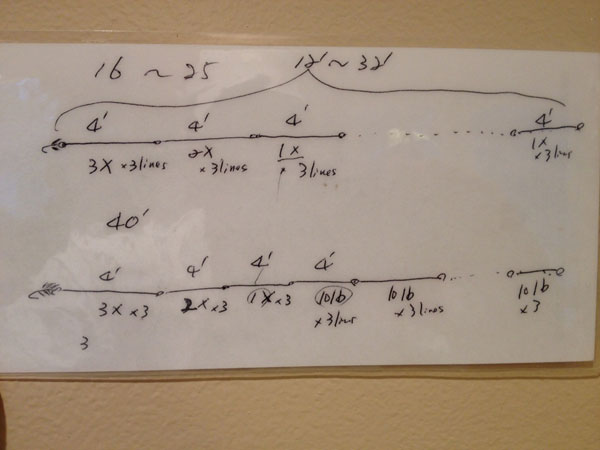 16 ~ 25 12' ~ 32'
4' 4' 4' 4'
3X x3 lines 2X x3 lines 1X x 3 lines 1X x3 lines
40'
4' 4' 4' 4'
3X x3 2X x3 1X x3 10lb x3 lines 10lb x3 lines 10lb x3
3